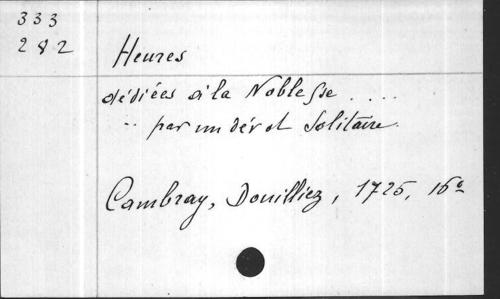 333
282
Heures
dédiées à la Noblesse ....
.. par un dévot Solitaire.
Cambray, Douilliez, 1725, 16º